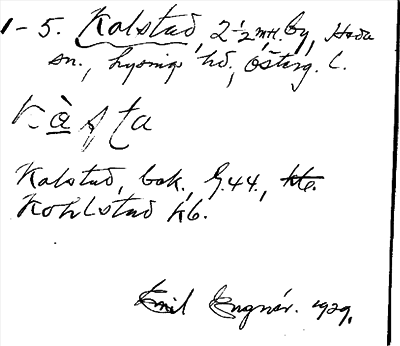 1-5. Kalstad, 2 1/2 mtl. by, Hoda
sn., Lysings hd, Österg. L.
kàsta
Kalstad, bok., G.44., kb.
Kohlstad kb.
Emil Engnér. 1929.